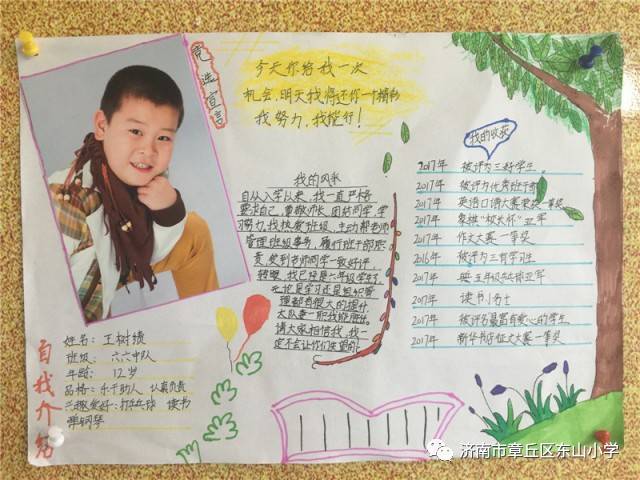 竞选宣言
今天你给我一次
机会,明天我将还你一个精彩
我努力,我能行!
我的风采
自从入学以来,我一直严格
要求自己,尊敬师长,团结同学,学
习努力,我热爱班级,主动帮老师
管理班级事务,履行班干部职
责,受到老师同学一致好评,
转眼,我已经是六年级学生了,
无论是学习还是组织管
理都有很大的提升,
大队委一职我能胜任。
请大家相信我,我一
定不会让你们失望的!
我的收获
2017年 被评为三好学生
2017年 被评为优秀班干部
2017年 英语口语大赛荣获一等奖
2017年 象棋“校长杯”亚军
2017年 作文大赛一等奖
2016年 被评为三好学习生
2017年 五年级乒乓球亚军
2017年 读书小名士
2017年 被评为最富有爱心的学生
2017年 新华书店征文大赛一等奖
自我介绍
姓名: 王树绩
班级: 六六中队
年龄: 12岁
品格:乐于助人、认真负责
兴趣爱好:打乒乓球 读书
弹钢琴
济南市章丘区东山小学